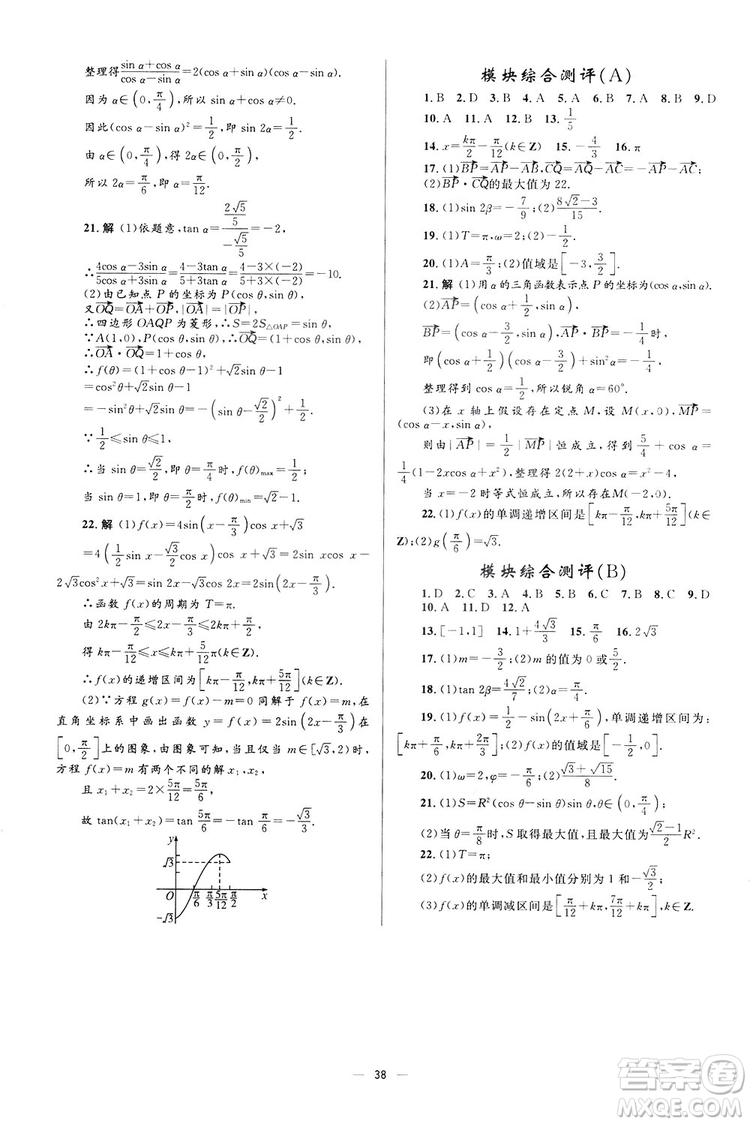 整理得(sin α+cos α)/(cos α−sin α)=2(cos α+sin α)(cos α−sin α).
因为 α∈(0,π/4),所以 sin α+cos α≠0.
因此(cos α−sin α)²=1/2,即 sin 2α=1/2.
由 α∈(0,π/4),得 2α∈(0,π/2),
所以 2α=π/6,即 α=π/12.
21.解 (1)依题意,tan α=(2√5/5)/(−√5/5)=−2,
∴(4cos α−3sin α)/(5cos α+3sin α)=(4−3tan α)/(5+3tan α)=(4−3×(−2))/(5+3×(−2))=−10.
(2)由已知点 P 的坐标为 P(cos θ,sin θ),
又OQ=OA+OP,|OA|=|OP|,
∴四边形 OAQP 为菱形,∴S=2S△OAP=sin θ.
∵A(1,0),P(cos θ,sin θ),∴OQ=(1+cos θ,sin θ).
∴OA·OQ=1+cos θ.
∴f(θ)=(1+cos θ−1)²+√2sin θ−1
=cos²θ+√2sin θ−1
=−sin²θ+√2sin θ=−(sin θ−√2/2)²+1/2.
∵1/2≤sin θ≤1,
∴当 sin θ=√2/2时,f(θ)max=1/2;
当 sin θ=1时,f(θ)min=√2−1.
22.解 (1)f(x)=4sin(x−π/3)cos x+√3
=4(1/2sin x−√3/2cos x)cos x+√3=2sin xcos x−
2√3cos²x+√3=sin 2x−√3cos 2x=2sin(2x−π/3).
∴函数 f(x)的周期为 T=π.
由 2kπ−π/2≤2x−π/3≤2kπ+π/2,
得 kπ−π/12≤x≤kπ+5π/12(k∈Z).
∴f(x)的递增区间为[kπ−π/12,kπ+5π/12](k∈Z).
(2)∵方程 g(x)=f(x)−m=0 同解于 f(x)=m,在
直角坐标系中画出函数 y=f(x)=2sin(2x−π/3)在
[0,π/2]上的图象,由图象可知,当且仅当 m∈[√3,2)时,
方程 f(x)=m 有两个不同的解 x₁,x₂,
且 x₁+x₂=2×5π/12=5π/6,
故 tan(x₁+x₂)=tan 5π/6=−tan π/6=−√3/3.
y
√3
O π/6 π/3 5π/12 π/2 x
−√3
模块综合测评(A)
1.B 2.D 3.B 4.A 5.B 6.D 7.A 8.B 9.D
10.A 11.A 12.D 13.1/5
14.x=kπ/2−π/12(k∈Z) 15.−√3/4 16.π
17.(1)BP=AP−AB,CQ=−AP−AC;
(2)BP·CQ的最大值为 22.
18.(1)sin 2β=−7/9;(2)(8√2−3)/15.
19.(1)T=π,ω=2;(2)−1/2.
20.(1)A=√3;(2)值域是[−3/2,√3].
21.解 (1)用 α 的三角函数表示点 P 的坐标为(cos α,sin α).
(2)AP=(cos α+1/2,sin α),
BP=(cos α−3/2,sin α),AP·BP=−1/4时,
即(cos α−3/2)(cos α+1/2)+sin²α=−1/4,
整理得到 cos α=1/2,所以锐角 α=60°.
(3)在 x 轴上假设存在定点 M,设 M(x,0),MP=
(cos α−x,sin α),
则由|AP|=1/2|MP|恒成立,得到 5/4+cos α=
1/4(1−2xcos α+x²),整理得 2(2+x)cos α=x²−4,
当 x=−2 时等式恒成立,所以存在M(−2,0).
22.(1)f(x)的单调递增区间是[kπ−π/12,kπ+5π/12](k∈
Z);(2)g(π/6)=√3.
模块综合测评(B)
1.D 2.C 3.A 4.C 5.B 6.B 7.C 8.C 9.D
10.A 11.D 12.A
13.[−1,1] 14.1+4√3/3 15.π/6 16.2√3
17.(1)m=−3/2;(2)m 的值为 0或5/2.
18.(1)tan 2β=4√2/7;(2)α=π/4.
19.(1)f(x)=1/2sin(2x+π/6),单调递增区间为:
[kπ−π/3,kπ+π/6],k∈Z;(2)f(x)的值域为[−1/4,1/2].
20.(1)ω=2,φ=−π/6;(2)(√3+√15)/8.
21.(1)S=R²(cos θ−sin θ)sin θ,θ∈(0,π/4);
(2)当 θ=π/8时,S 取得最大值,且最大值为(√2−1)/2R².
22.(1)T=π;
(2)f(x)的最大值和最小值分别为 1和−√3/2;
(3)f(x)的单调减区间是[π/12+kπ,7π/12+kπ],k∈Z.
— 38 —
答案圈